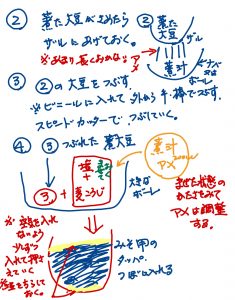 ② 煮た大豆がさめたら
ザルにあげておく。
※あまり長くおかない
② 煮た
大豆
ザル
アメ
煮汁
ナベ又は
ボール
③ ②の大豆をつぶす
※ビニールに入れて外から手・棒でつぶす。
スピードカッターでつぶしていく。
④ ③ つぶれた煮大豆
③ +
塩
+
麦こうじ
煮汁
アメ 200cc
大きな
ボール
まぜた状態の
かたさをみて
アメは調整
する。
※空気を入れ
ないよう
少しずつ
入れて押さ
えていく
みそ用の
タッパ、
つぼに入れる